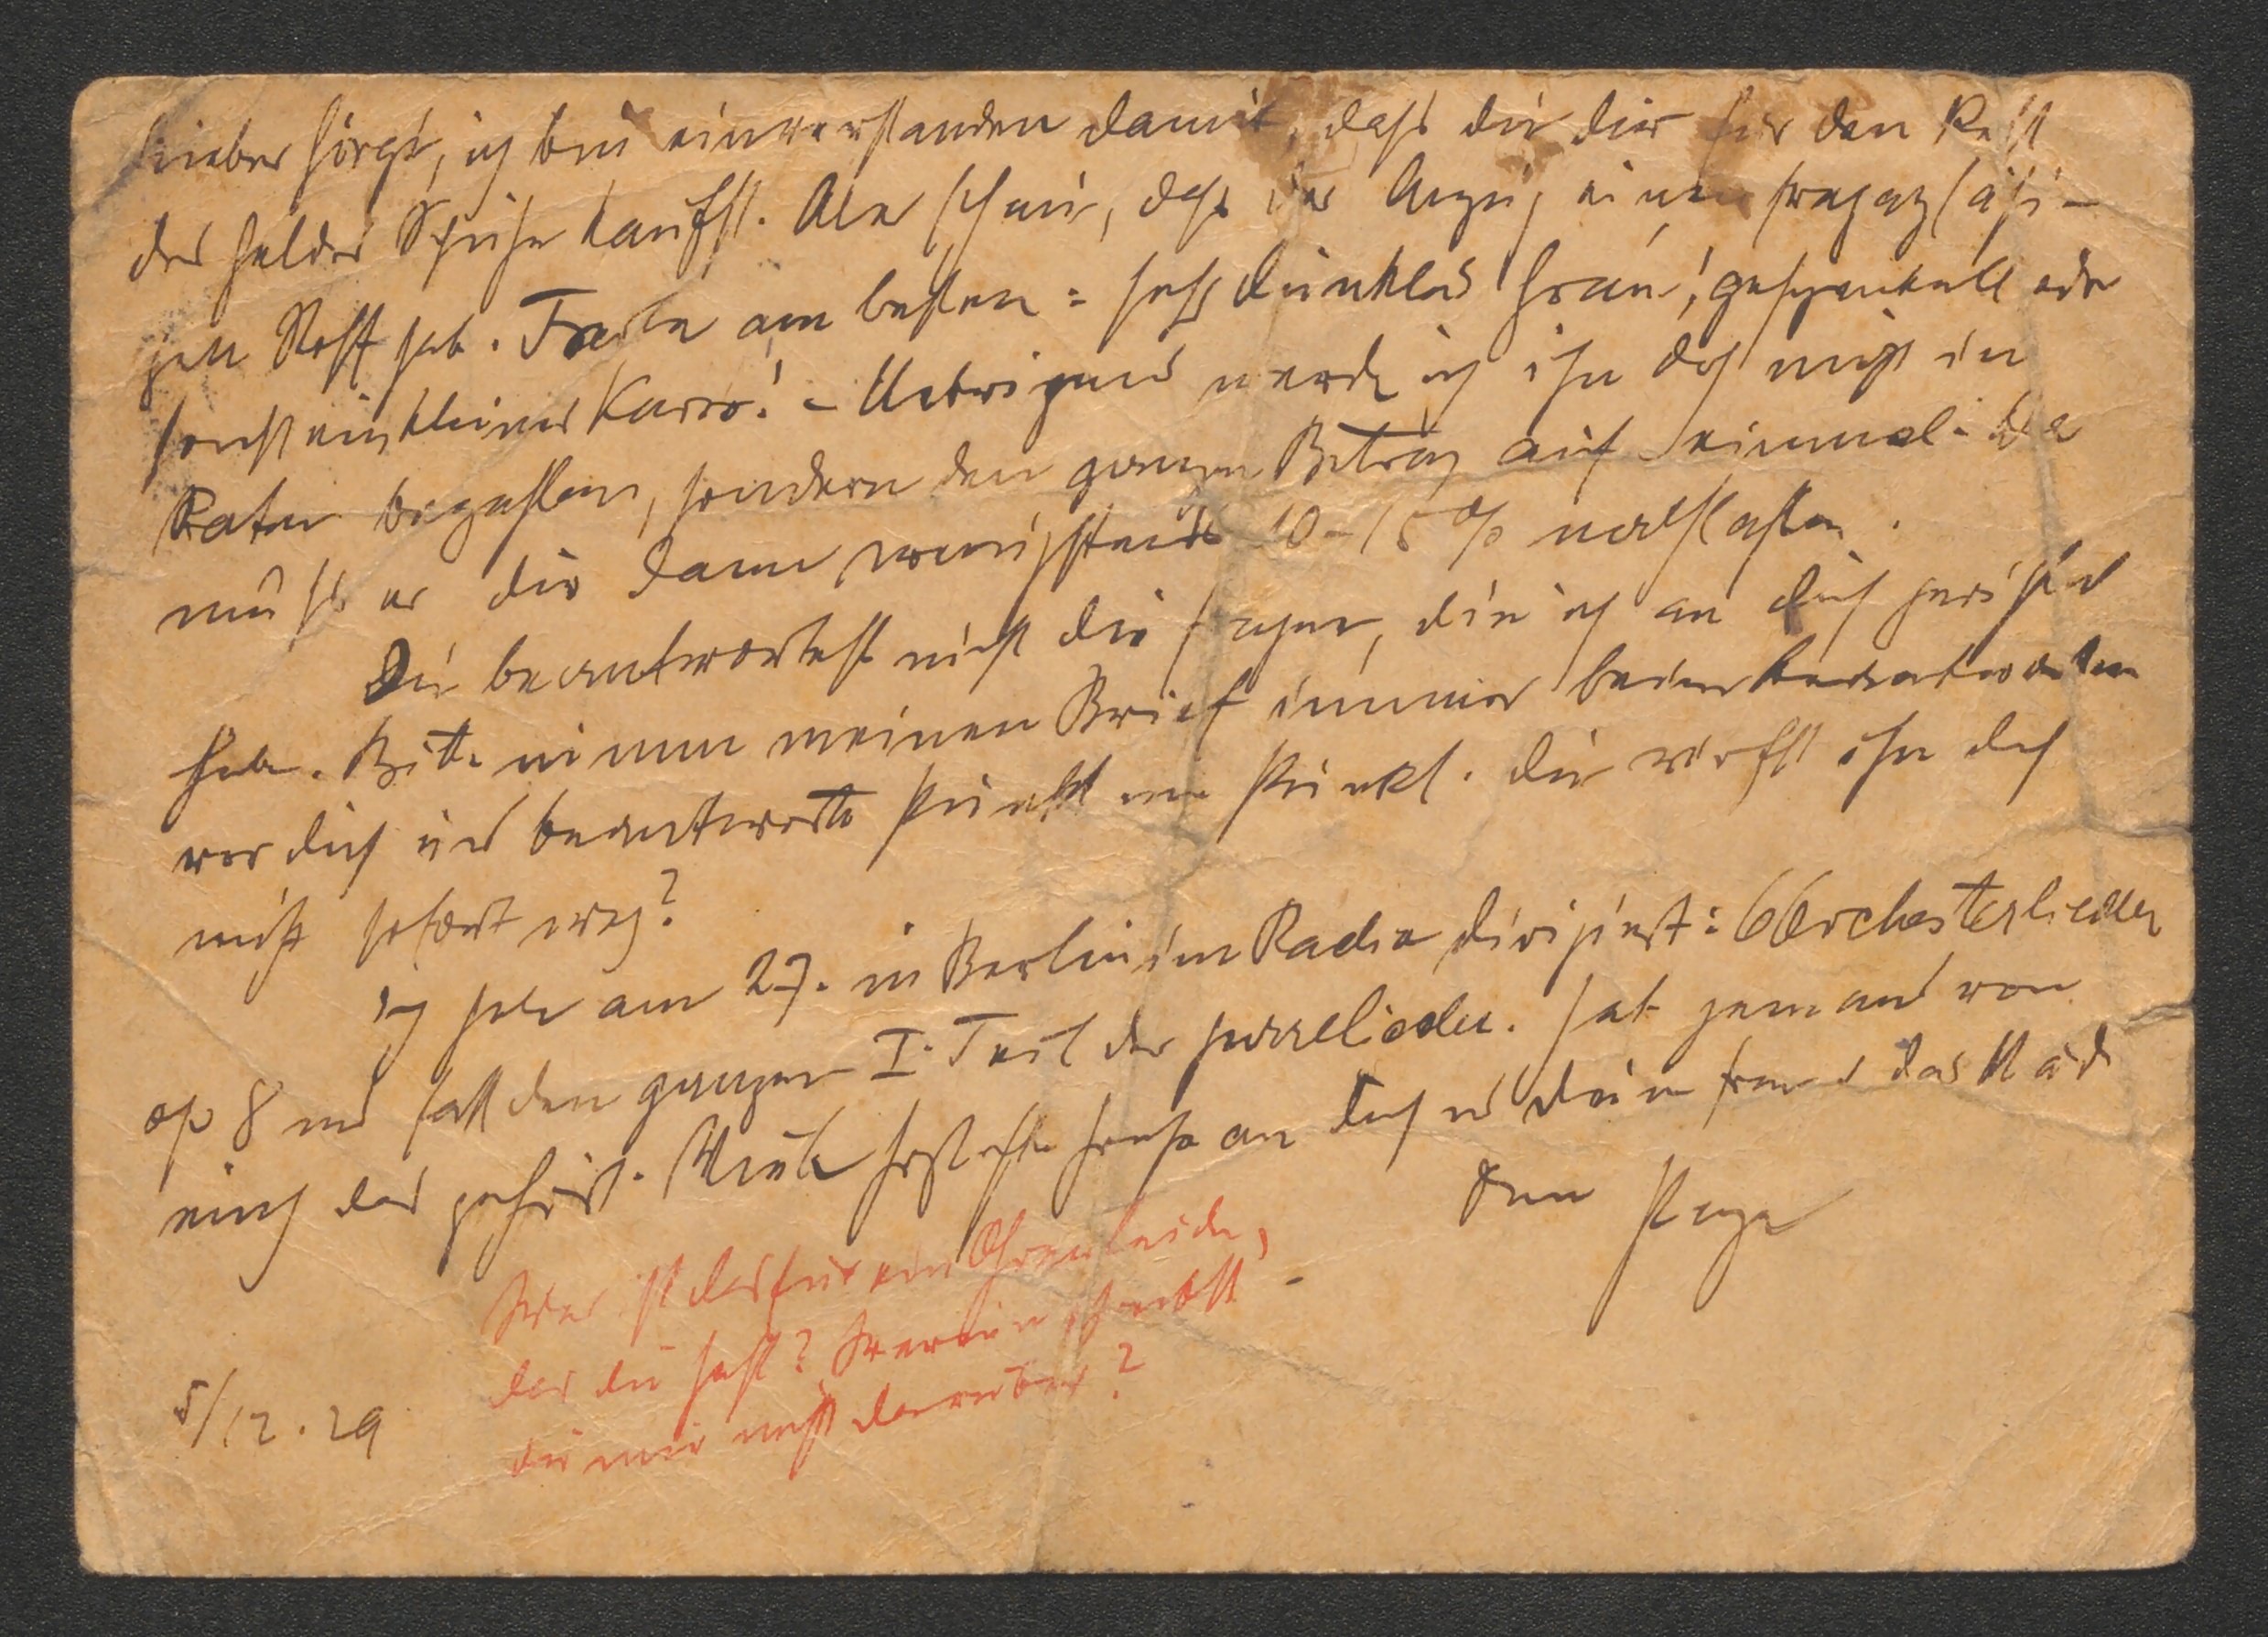 Lieber Görgi, ich bin einverstanden damit, dass du dir für den Rest
des Geldes Schuhe kaufst. Aber schau, dass der Anzug einen strapazfähi-
gen Stoff hat. Farbe am besten: sehr dunkles Grau, gesprenkelt oder
sonst ein kleines Karro! – Uebrigens werde ich ihn doch nicht in
Raten bezahlen, sondern den ganzen Betrag auf einmal. Da
muss er dir dann wenigstens 10–15% nachlassen.
Du beantwortest nicht die Fragen, die ich an dich gerichtet
habe. Bitte nimm meinen Brief immer beim beantworten
vor dich und beantworte Punkt um Punkt. Du wirfst ihn doch
nicht sofort weg?
Ich habe am 27. in Berlin im Radio dirigiert: 6 Orchesterlieder
op 8 und fast den ganzen I. Teil der Gurrelieder. Hat jemand von
euch das gehört. Viele herzlichste Grüsse an dich und deine Frau und das Kind
Dein Papa
Was ist das für ein Ohrenleiden,
das du hast? Warum schreibst
du mir nicht darüber?
5/12.29